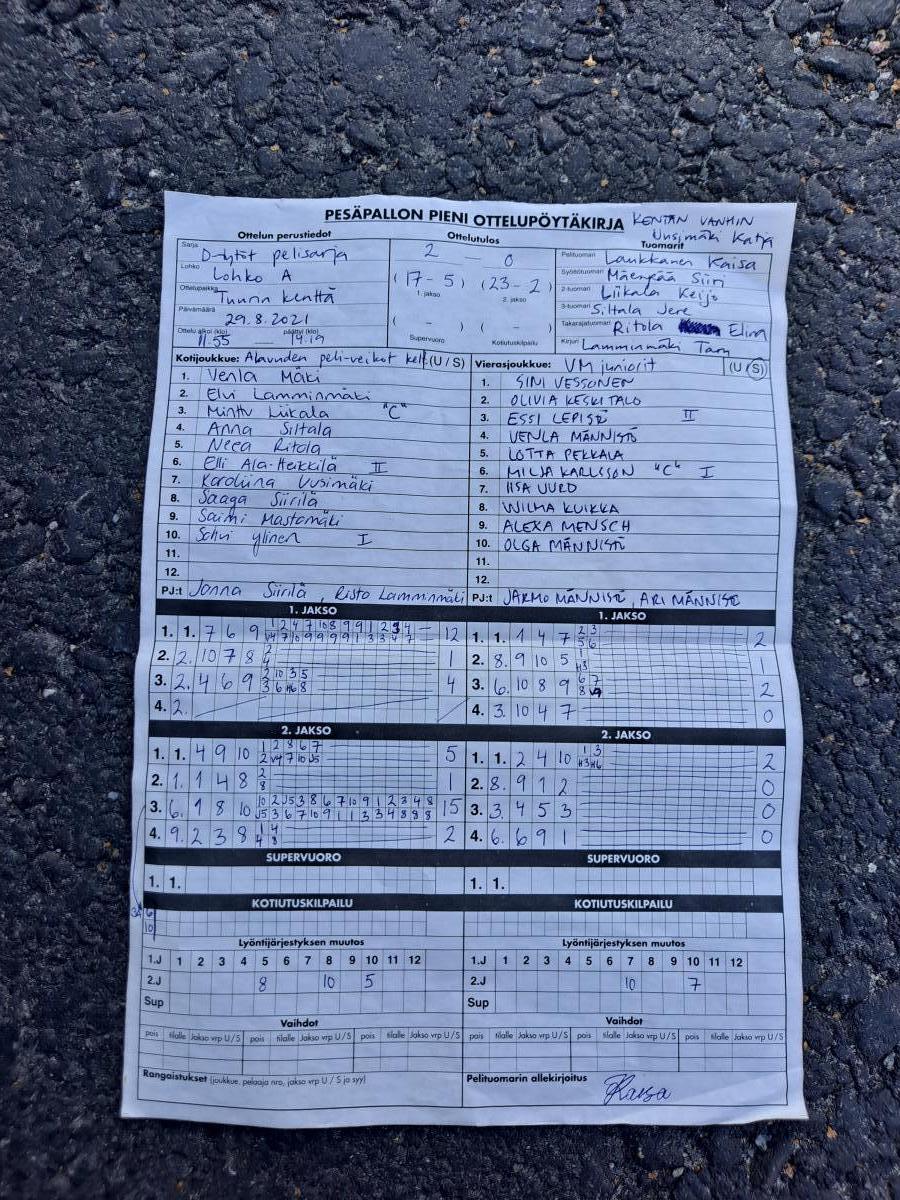 PESÄPALLON PIENI OTTELUPÖYTÄKIRJA KENTÄN VANHIN
Uusimäki Katja
Ottelun perustiedot Ottelutulos Tuomarit
Sarja D-tytöt pelisarja
Lohko Lohko A
Ottelupaikka Tuurin kenttä
Päivämäärä 29.8.2021
Ottelu alkoi (klo) 11.55 — päättyi (klo) 14.19
2 — 0
(17-5) (23-2)
1. jakso 2. jakso
( - ) ( - )
Supervuoro Kotiutuskilpailu
Pelituomari Laukkanen Kaisa
Syöttötuomari Mäenpää Siiri
2-tuomari Liikala Keijo
3-tuomari Siltala Jere
Takarajatuomari Ritola Elina
Kirjuri Lamminmäki Taru
Kotijoukkue: Alavuden peli-veikot kelt. (U / S)
1. Venla Mäki
2. Elvi Lamminmäki
3. Minttu Liikala "C"
4. Anna Siltala
5. Neea Ritola
6. Elli Ala-Heikkilä II
7. Karoliina Uusimäki
8. Saaga Siirilä
9. Saimi Mastomäki
10. Sohvi Ylinen I
11.
12.
PJ:t Jonna Siirilä, Risto Lamminmäki
Vierasjoukkue: VM juniorit (U / S)
1. SINI VESSONEN
2. OLIVIA KESKITALO
3. ESSI LEPISTÖ II
4. VENLA MÄNNISTÖ
5. LOTTA PEKKALA
6. MILJA KARLSSON "C" I
7. IISA UURO
8. WILMA KUIKKA
9. ALEXA MENSCH
10. OLGA MÄNNISTÖ
11.
12.
PJ:t JARMO MÄNNISTÖ, ARI MÄNNISTÖ
1. JAKSO
1. 1. 7 6 9 1 2 4 7 10 8 9 9 1 2 3 4 — 12
V4 7 10 9 9 9 9 1 3 3 4 7
2. 2. 10 7 8 2 1
4
3. 2. 4 6 9 2 10 3 5 4
3 6 H6 8
4. 2.
1. JAKSO
1. 1. 1 4 7 2 3 2
5 6
2. 8. 9 10 5 1 1
H3
3. 6. 10 8 9 6 7 2
8 V9
4. 3. 10 4 7 0
2. JAKSO
1. 1. 4 9 10 1 2 8 6 7 5
2 V4 7 10 J5
2. 1. 1 4 8 2 1
8
3. 6. 1 8 10 10 2 J5 3 8 6 7 10 9 1 2 3 4 8 15
J5 3 6 7 10 9 1 1 3 3 4 8 8 8
4. 9. 2 3 8 1 4 2
4 8
2. JAKSO
1. 1. 2 4 10 1 3 2
H3 H6
2. 8. 9 1 2 0
3. 3. 4 5 3 0
4. 6. 6 9 1 0
SUPERVUORO
1. 1.
SUPERVUORO
1. 1.
KOTIUTUSKILPAILU
6
10
KOTIUTUSKILPAILU
Lyöntijärjestyksen muutos
1.J 1 2 3 4 5 6 7 8 9 10 11 12
2.J 8 10 5
Sup
Lyöntijärjestyksen muutos
1.J 1 2 3 4 5 6 7 8 9 10 11 12
2.J 10 7
Sup
Vaihdot
pois tilalle Jakso vrp U / S pois tilalle Jakso vrp U / S pois tilalle Jakso vrp U / S
Vaihdot
pois tilalle Jakso vrp U / S pois tilalle Jakso vrp U / S pois tilalle Jakso vrp U / S
Rangaistukset (joukkue, pelaaja nro, jakso vrp U / S ja syy)
Pelituomarin allekirjoitus
Kaisa